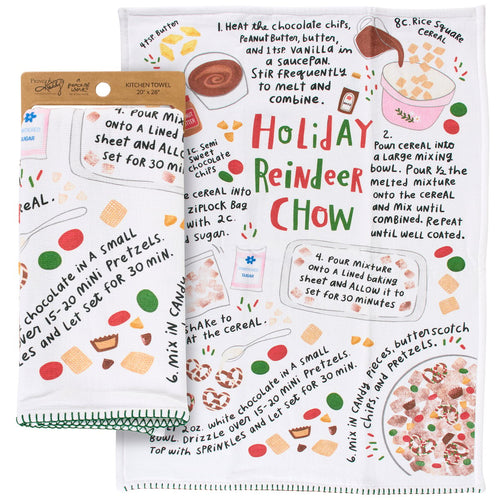 4 tsp. Butter
1. Heat the chocolate chips,
Peanut Butter, butter,
and 1 tsp. Vanilla in
a saucepan.
Stir frequently
to melt and
combine.
8c. Rice Square
cereal
KITCHEN TOWEL
20" x 28"
Holiday
Reindeer
Chow
1c. Semi
Sweet
chocolate
chips
2.
Pour cereal into
a large mixing
bowl. Pour 1/2 the
melted mixture
onto the cereal
and mix until
combined. Repeat
until well coated.
e cereal into
ziplock Bag
with 2c.
d Sugar.
shake to
at the cereal.
4. Pour mixture
onto a lined baking
sheet and allow it to
set for 30 minutes
2oz. white chocolate in a small
bowl. Drizzle over 15-20 mini pretzels.
Top with sprinkles and let set for 30 min.
6. mix in candy pieces, butterscotch
chips, and pretzels.
4. Pour mixtu
onto a lined
sheet and allow
set for 30 m
SUGAR
eal.
chocolate in a small
over 15-20 mini pretzels.
es and let set for 30 min.
6. mix in candy